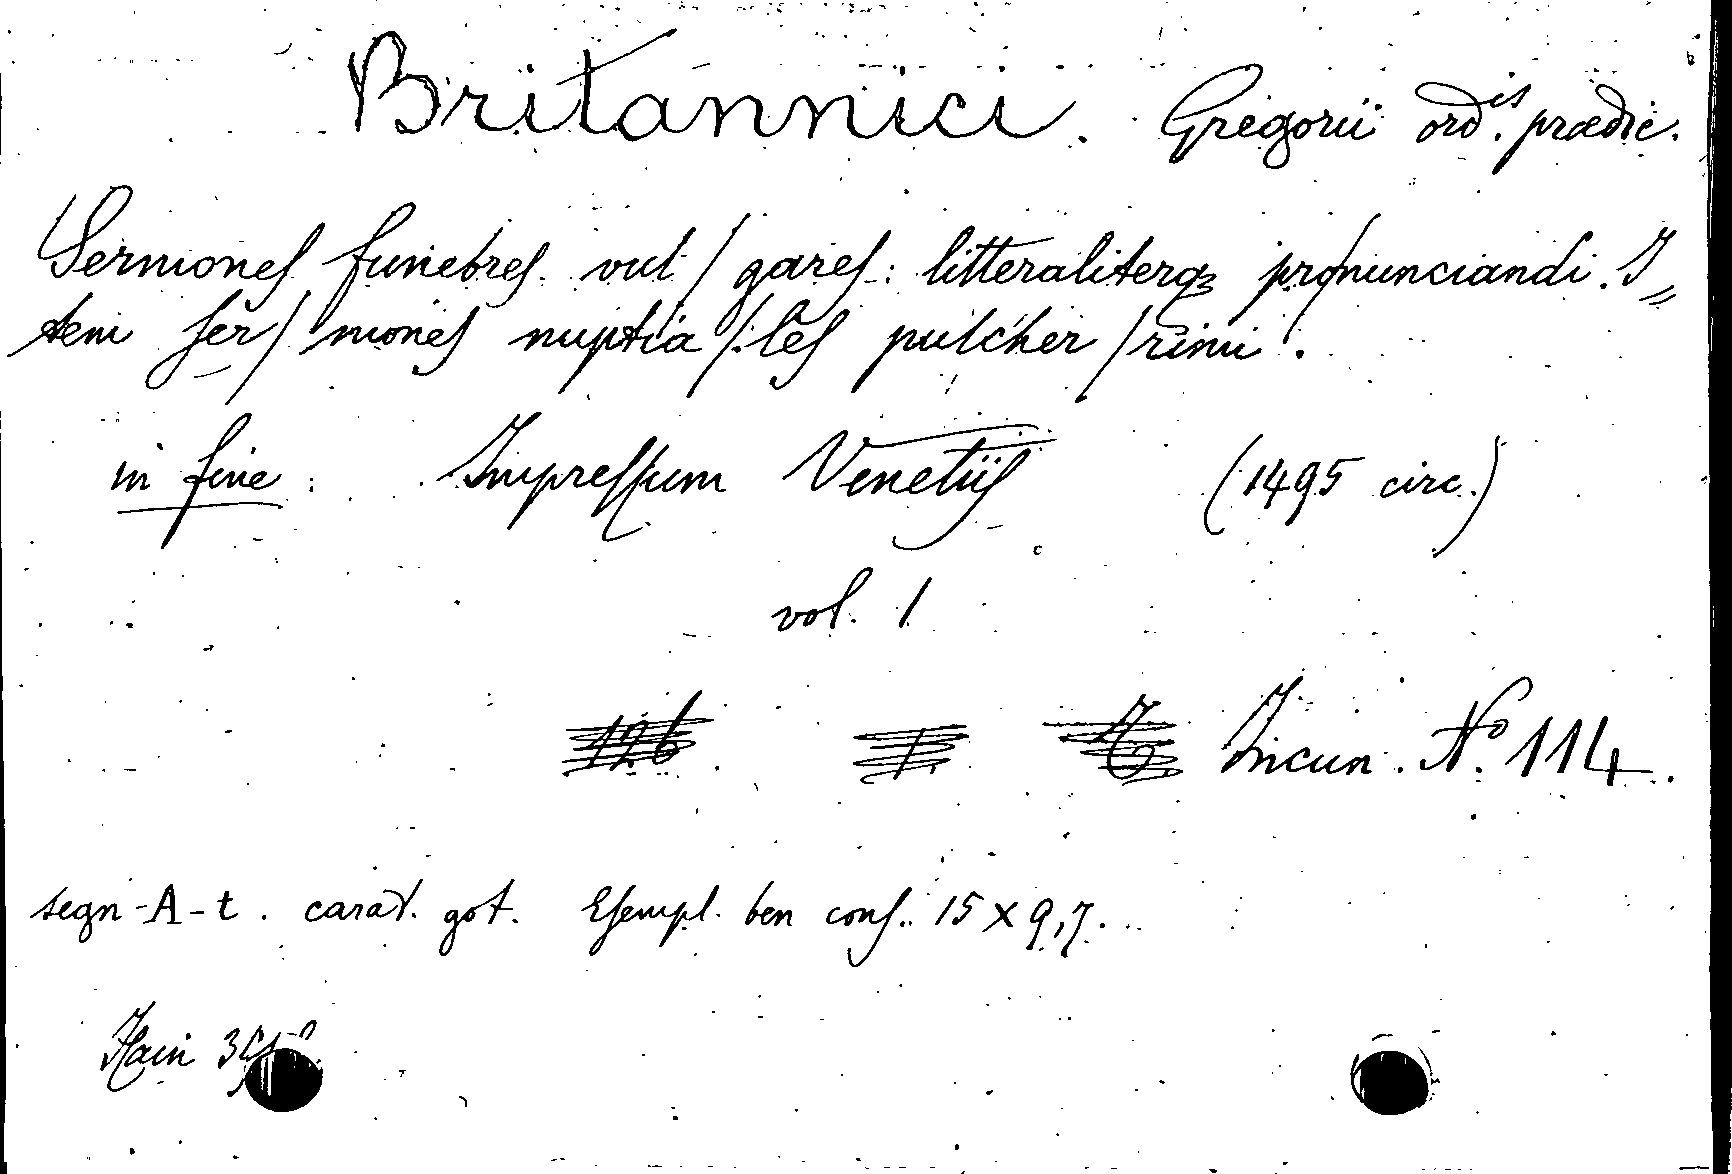 Britannici. Gregorii ord.is prædic.
Sermones funebres vul / gares: litteraliterqz pronunciandi. I=
tem ser / mones nuptia / les pulcher / rimi.
in fine: Impressum Venetiis (1495 circ.)
vol. 1
Incun. No. 114.
segn-A-t. carat. got. Esempl. ben cons. 15 x 9,7.
Hain